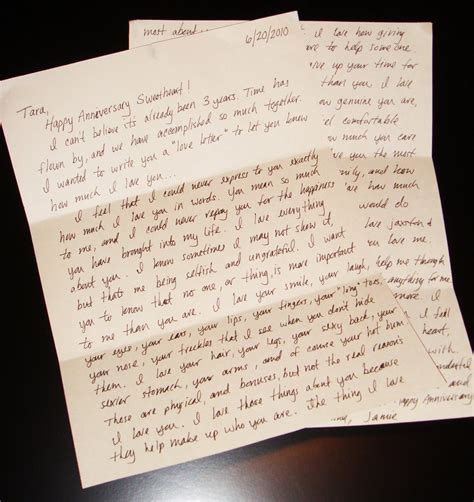 6/20/2010
Tara,
Happy Anniversary Sweetheart!
I can't believe its already been 3 years. Time has
flown by, and we have accomplished so much together.
I wanted to write you a "love letter" to let you know
how much I love you...
I feel that I could never express to you exactly
how much I love you in words. You mean so much
to me, and I could never repay you for the happiness
you have brought into my life. I love everything
about you. I know sometimes I may not show it,
but thats me being selfish and ungrateful. I want
you to know that no one, or thing, is more important
to me than you are. I love your smile, your laugh,
your eyes, your ears, your lips, your fingers, your "long" toes,
your nose, your freckles that I see when you don't hide
them. I love your hair, your legs, your sexy back, your
sexier stomach, your arms, and of course your hot bum.
These are physical, and bonuses, but not the real reasons
I love you. I love those things about you because
they help make up who you are. The thing I love
most about
I love how giving
are to help someone
give up your time for
than you. I love
how genuine you are,
feel comfortable
much you care
you the most
and know
how much
would do
love jaxston &
love me.
help me through
anything for me
more. I
I feel
heart,
with
and
Happy Anniversary
Jamie